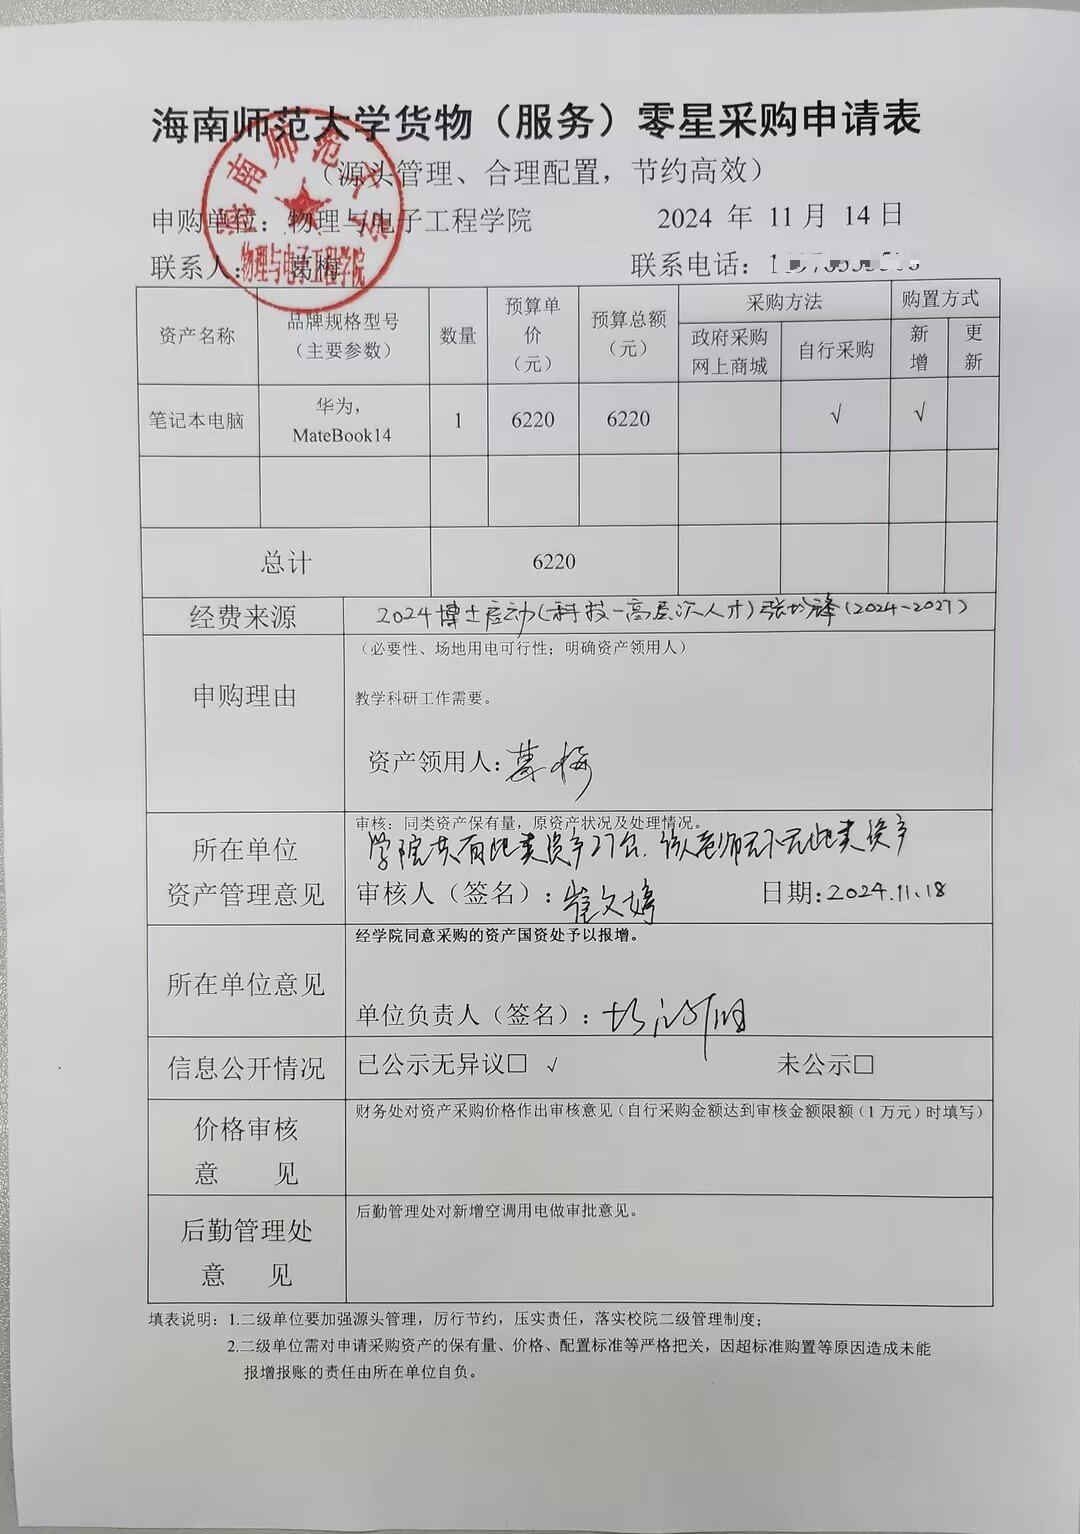 海南师范大学货物（服务）零星采购申请表
（源头管理、合理配置，节约高效）
申购单位：物理与电子工程学院 2024 年 11 月 14 日
联系人： 葛梅 联系电话：
海南师范大学
物理与电子工程学院
资产名称 品牌规格型号（主要参数） 数量 预算单价（元） 预算总额（元） 采购方法 购置方式
政府采购网上商城 自行采购 新增 更新
笔记本电脑 华为，MateBook14 1 6220 6220 √ √
总计 6220
经费来源 2024博士启动(科技-高层次人才)张均锋(2024-2027)
申购理由 （必要性、场地用电可行性；明确资产领用人）
教学科研工作需要。
资产领用人：葛梅
所在单位资产管理意见 审核：同类资产保有量，原资产状况及处理情况。
学院共有此类资产27台，该老师名下无此类资产
审核人（签名）：崔文婷 日期：2024.11.18
所在单位意见 经学院同意采购的资产国资处予以报增。
单位负责人（签名）：
信息公开情况 已公示无异议□ √ 未公示□
价格审核意 见 财务处对资产采购价格作出审核意见（自行采购金额达到审核金额限额（1 万元）时填写）
后勤管理处意 见 后勤管理处对新增空调用电做审批意见。
填表说明：1.二级单位要加强源头管理，厉行节约，压实责任，落实校院二级管理制度；
2.二级单位需对申请采购资产的保有量、价格、配置标准等严格把关，因超标准购置等原因造成未能
报增报账的责任由所在单位自负。